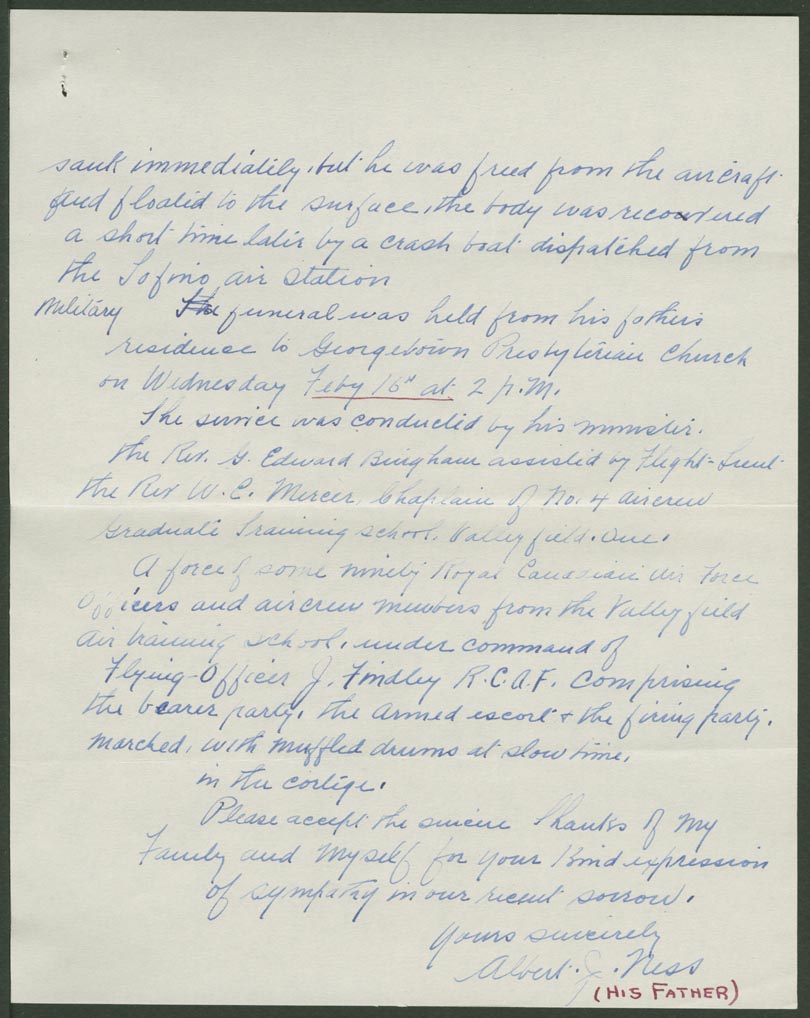 sank immediatily, but he was freed from the aircraft
and floated to the surface, the body was recovered
a short time later by a crash boat dispatched from
the Tofino air station
Military The funeral was held from his father's
residence to Georgetown Presbyterian Church
on Wednesday Feby 16th at 2 P.M.
The service was conducted by his minister.
the Rev. G. Edward Bingham assisted by Flight-Lieut
the Rev W. C. Mercer, Chaplain of No. 4 aircrew
Graduate Training school, Valleyfield. Que.
A force of some ninety Royal Canadian Air Force
Officers and aircrew members from the Valleyfield
Air training school, under command of
Flying-Officer J. Findley R.C.A.F. Comprising
the bearer party, the armed escort & the firing party.
Marched, with muffled drums at slow time,
in the cortège.
Please accept the sincere thanks of My
Family and Myself for your kind expression
of sympathy in our recent sorrow.
Yours sincerely
Albert. J. Ness
(HIS FATHER)